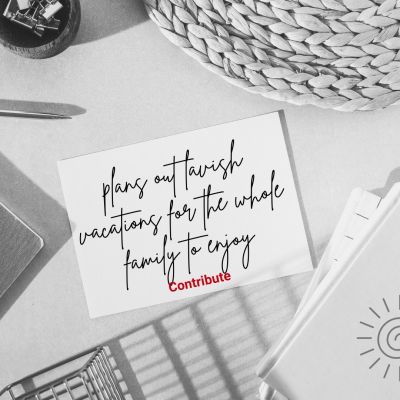 plans out lavish
vacations for the whole
family to enjoy
Contribute